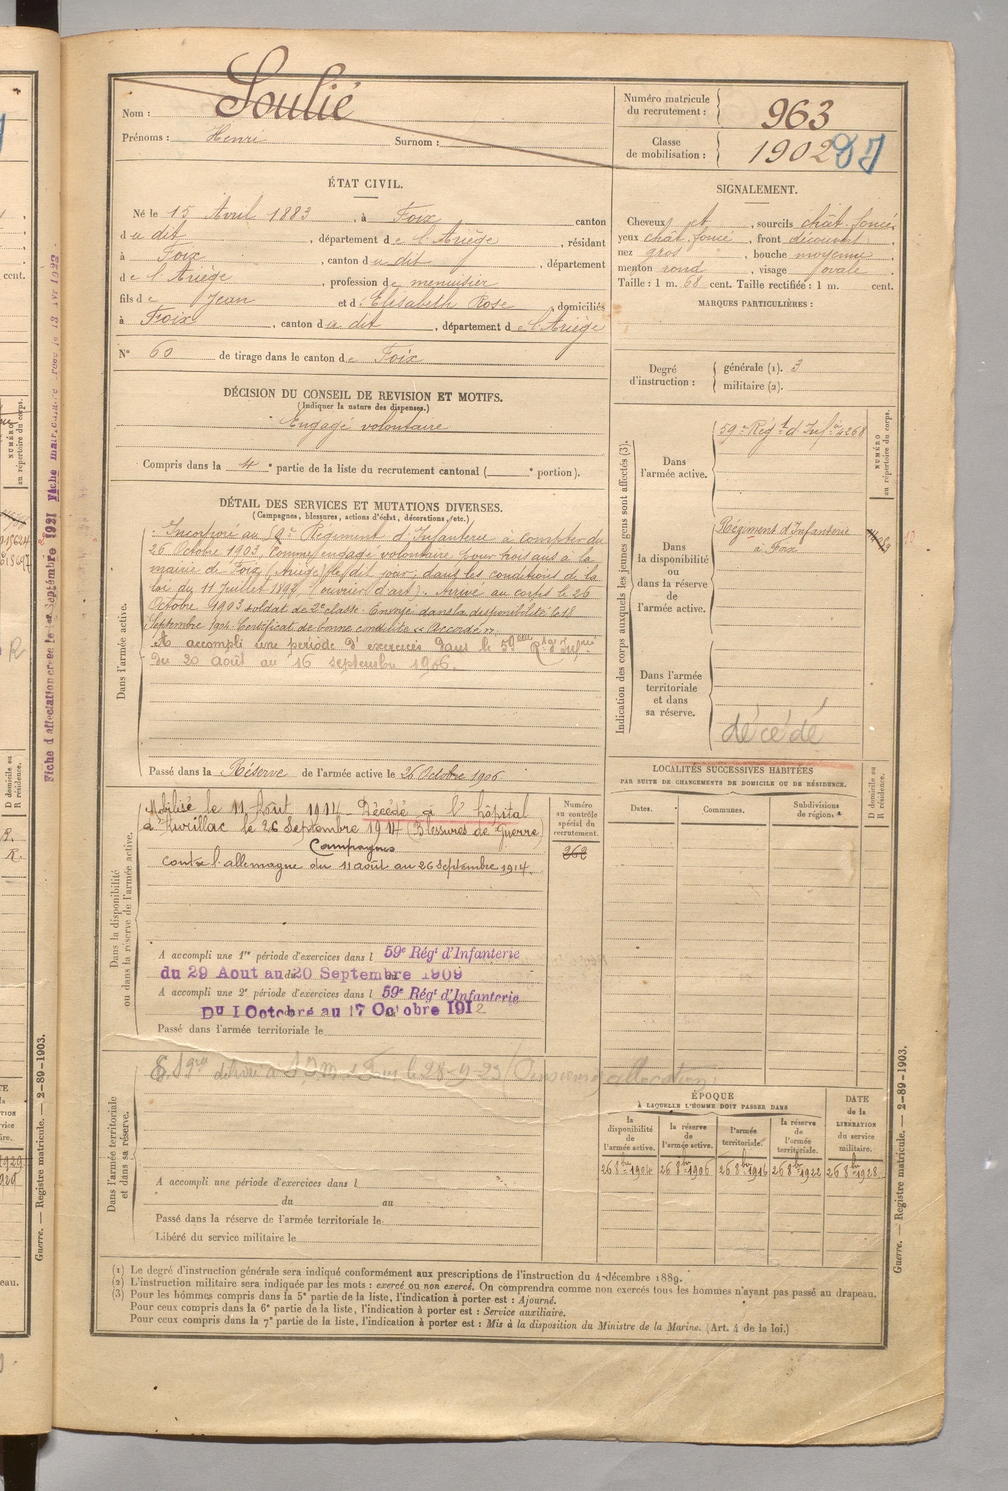 Nom : Soulié
Prénoms : Henri Surnom :
Numéro matricule du recrutement : 963
Classe de mobilisation : 1902
ÉTAT CIVIL.
Né le 15 Avril 1883, à Foix canton
du dit, département de l'Ariège, résidant
à Foix, canton du dit, département
de l'Ariège, profession de menuisier
fils de Jean et d'Elisabeth Rose, domiciliés
à Foix, canton du dit, département de l'Ariège
N° 60 de tirage dans le canton de Foix
SIGNALEMENT.
Cheveux et, sourcils chât. foncé,
yeux chât. foncé, front découvert,
nez gros, bouche moyenne,
menton rond, visage ovale
Taille : 1 m. 68 cent. Taille rectifiée : 1 m. cent.
MARQUES PARTICULIÈRES :
Degré d'instruction : générale (1). 3
militaire (2).
DÉCISION DU CONSEIL DE REVISION ET MOTIFS.
(Indiquer la nature des dispenses.)
Engagé volontaire
Compris dans la 4e partie de la liste du recrutement cantonal ( e portion).
DÉTAIL DES SERVICES ET MUTATIONS DIVERSES.
(Campagnes, blessures, actions d'éclat, décorations, etc.)
Dans l'armée active.
Incorporé au Régiment d'Infanterie à compter du
26 Octobre 1903, Comme engagé volontaire pour trois ans à la
mairie de Foix (Ariège) le dit jour, dans les conditions de la
loi du 11 Juillet 1892 (ouvrier d'art). Arrivé au corps le 26
Octobre 1903 soldat de 2e classe. Envoyé dans la disponibilité le 18
Septembre 1904. Certificat de bonne conduite « Accordé ».
A accompli une période d'exercices dans le 59e Régt d'Infrie
du 20 août au 16 septembre 1906.
Passé dans la Réserve de l'armée active le 26 Octobre 1906
Indication des corps auxquels les jeunes gens sont affectés (3).
NUMÉRO au répertoire du corps.
Dans l'armée active.
59e Régt d'Infie 4268
Dans la disponibilité ou dans la réserve de l'armée active.
Régiment d'Infanterie
à Foix
Dans l'armée territoriale et dans sa réserve.
décédé
Dans la disponibilité ou dans la réserve de l'armée active.
Mobilisé le 11 Août 1914 Décédé à l'hôpital
d'Aurillac le 26 Septembre 1914 (Blessures de Guerre)
Campagnes
contre l'allemagne du 11 août au 26 Septembre 1914.
Numéro au contrôle spécial du recrutement.
262
A accompli une 1re période d'exercices dans l 59e Régt d'Infanterie
du 29 Aout au 20 Septembre 1909
A accompli une 2e période d'exercices dans l 59e Régt d'Infanterie
Du 1 Octobre au 17 Octobre 1912
Passé dans l'armée territoriale le
LOCALITÉS SUCCESSIVES HABITÉES
PAR SUITE DE CHANGEMENTS DE DOMICILE OU DE RÉSIDENCE.
Dates. Communes. Subdivisions de région.
D domicile ou R résidence.
Dans l'armée territoriale et dans sa réserve.
le 28-9-23 (Pension allocation)
A accompli une période d'exercices dans l
du au
Passé dans la réserve de l'armée territoriale le
Libéré du service militaire le
ÉPOQUE
À LAQUELLE L'HOMME DOIT PASSER DANS
la disponibilité de l'armée active. la réserve de l'armée active. l'armée territoriale. la réserve de l'armée territoriale. DATE de la LIBÉRATION du service militaire.
26 8bre 1904 26 8bre 1906 26 8bre 1916 26 8bre 1922 26 8bre 1928
(1) Le degré d'instruction générale sera indiqué conformément aux prescriptions de l'instruction du 4 décembre 1889.
(2) L'instruction militaire sera indiquée par les mots : exercé ou non exercé. On comprendra comme non exercés tous les hommes n'ayant pas passé au drapeau.
(3) Pour les hommes compris dans la 5e partie de la liste, l'indication à porter est : Ajourné.
Pour ceux compris dans la 6e partie de la liste, l'indication à porter est : Service auxiliaire.
Pour ceux compris dans la 7e partie de la liste, l'indication à porter est : Mis à la disposition du Ministre de la Marine. (Art. 4 de la loi.)
Guerre. — Registre matricule. — 2-89-1903.
Guerre. — Registre matricule. — 2-89-1903.